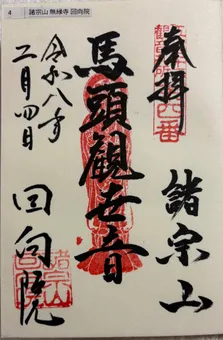 4 諸宗山 無縁寺 回向院
奉拝
諸宗山
馬頭観世音
令和八年
二月四日
回向院